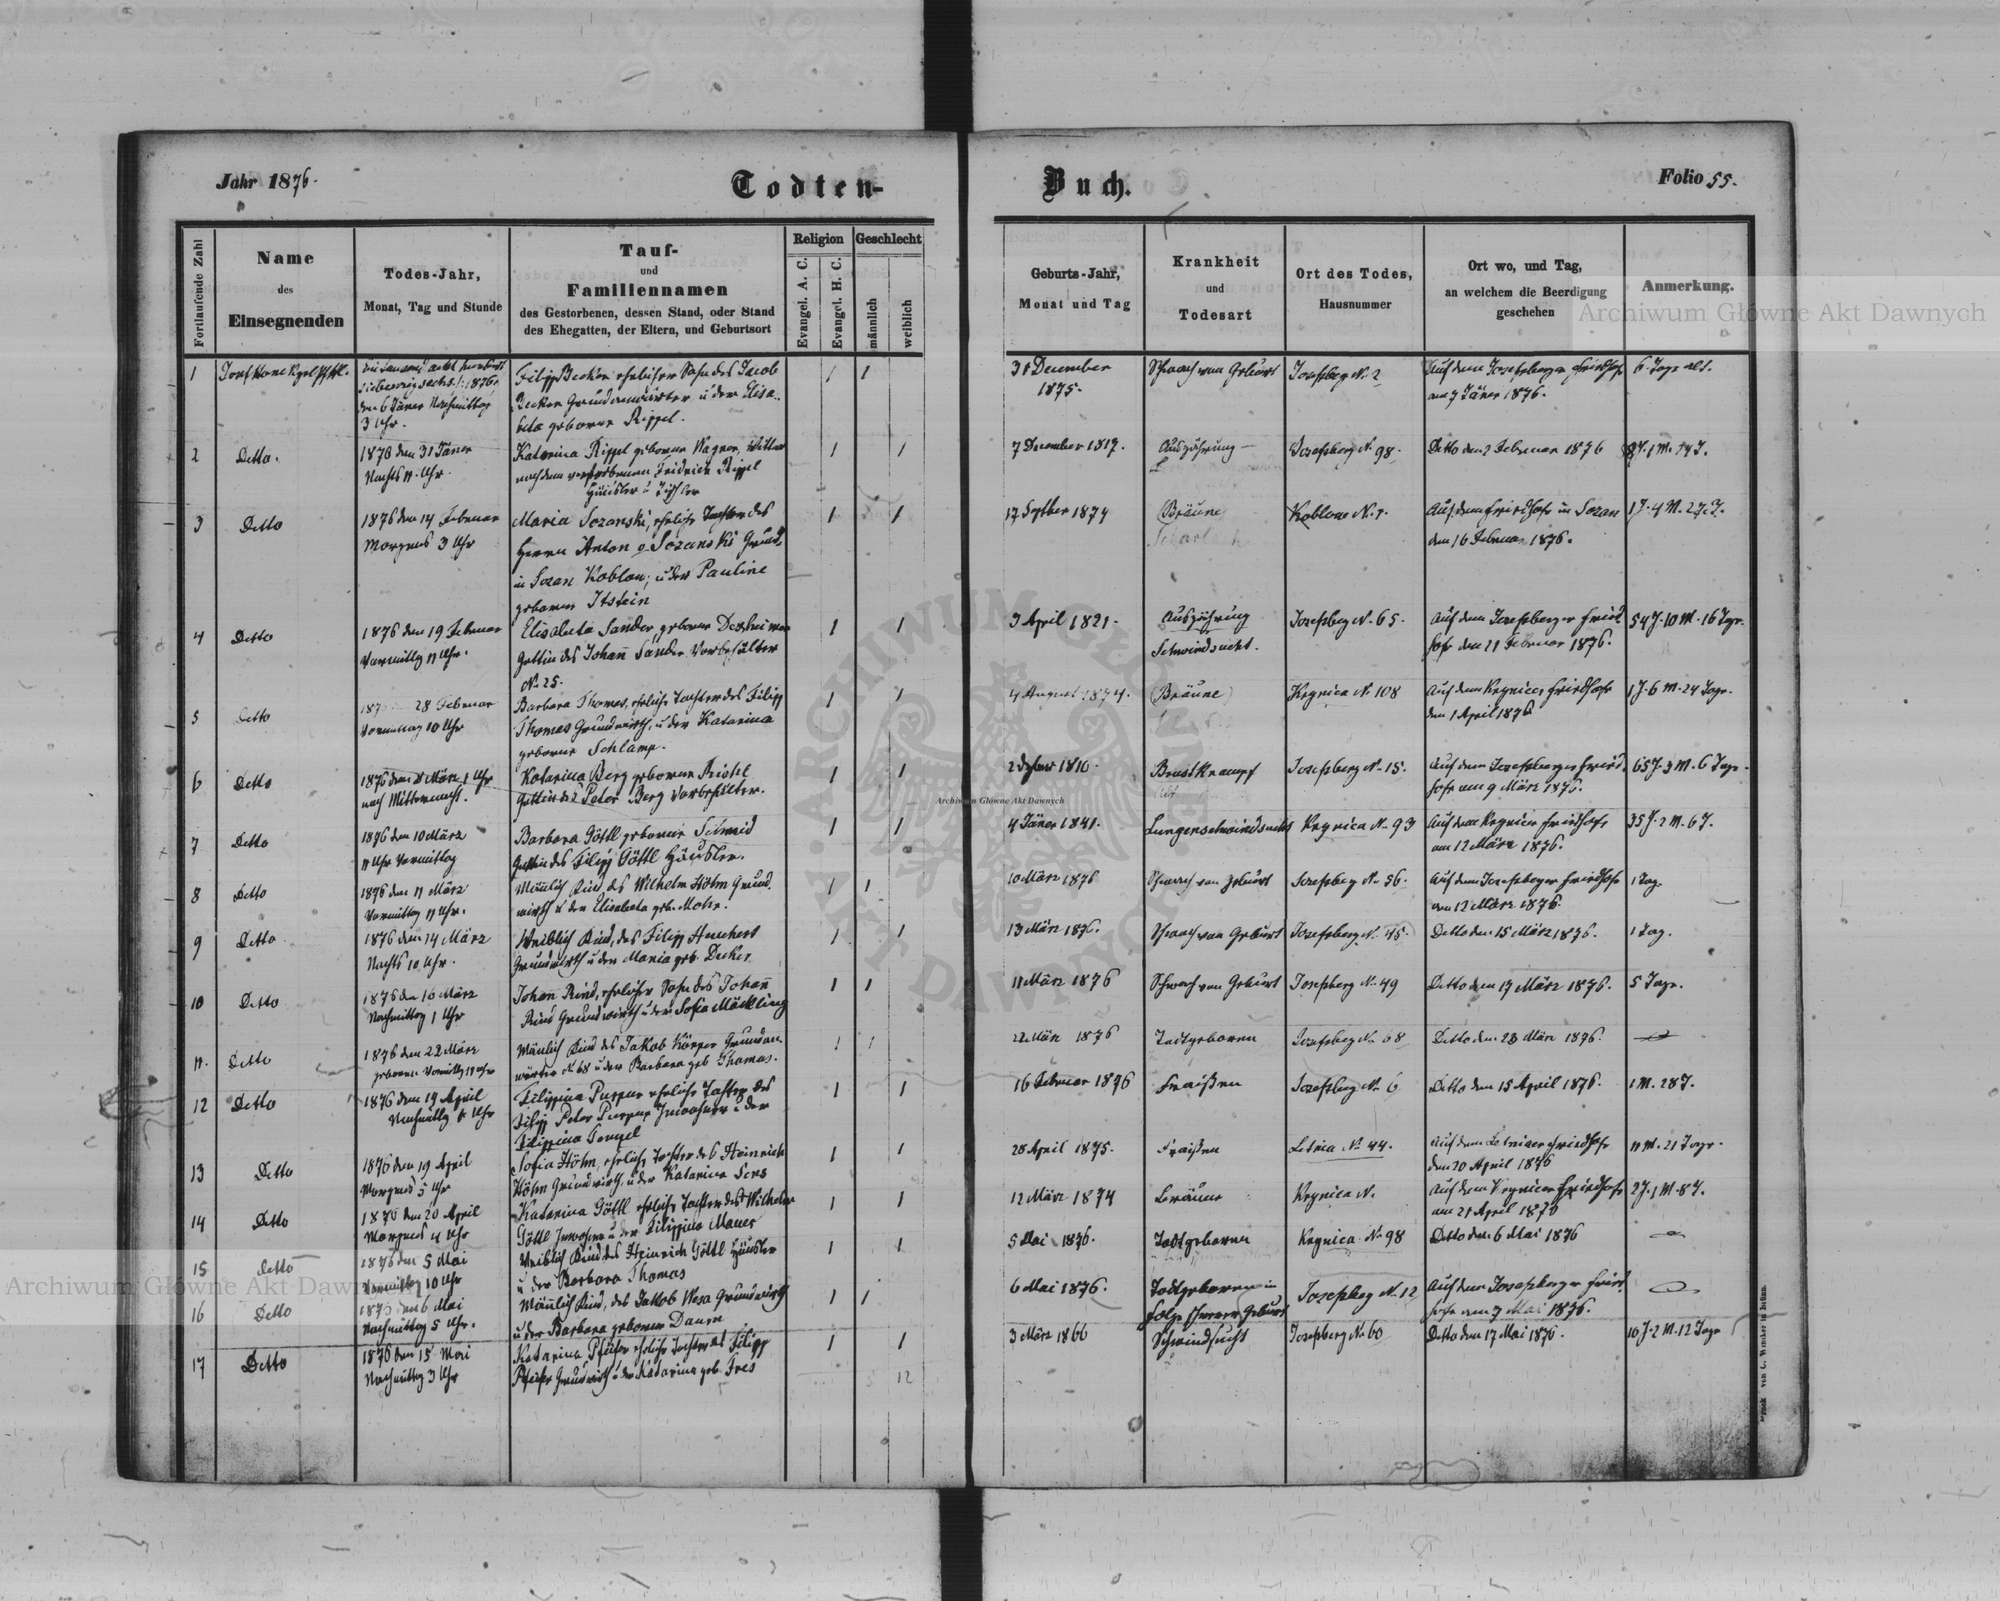 Jahr 1876.
Todten-
Buch.
Folio 55.
Fortlaufende Zahl
Name
des
Einsegnenden
Todes-Jahr,
Monat, Tag und Stunde
Tauf-
und
Familiennamen
des Gestorbenen, dessen Stand, oder Stand
des Ehegatten, der Eltern, und Geburtsort
Religion
Evangel. A. C.
Evangel. H. C.
Geschlecht
männlich
weiblich
Geburts-Jahr,
Monat und Tag
Krankheit
und
Todesart
Ort des Todes,
Hausnummer
Ort wo, und Tag,
an welchem die Beerdigung
geschehen
Anmerkung.
1
den 6 Jäner Nachmittag
3 Uhr.
Filipp Becker ehelicher Sohn des Jacob
Becker Grundanwärter u der Elisa-
beta geborene Rippel.
31 December
1875.
Schwach von Geburt
Josefsberg No 2
Auf dem Josefsberger Friedhofe
am 7 Jäner 1876.
6 Tage alt.
2
Detto.
1876 den 31 Jäner
Nachts 11 Uhr.
Katarina Rippel geborene Wagner, Witwe
nach dem verstorbenen Fridrich Rippel
Häusler u Tischler
7 December 1817.
Auszehrung
Josefsberg No 98.
Detto den 2 Februar 1876
3
Detto
1876 den 14 Februar
Morgens 3 Uhr
Maria Sozanski, eheliche Tochter des
Herrn Anton v. Sozanski Grund.
in Sozan Koblow; u der Pauline
geborene Itstein
17 Septber 1874
Bräune
Koblow No 7.
Auf dem Friedhofe in Sozan
den 16 Februar 1876.
1 J. 4 M. 27 T.
4
Detto
1876 den 19 Februar
Vormittag 11 Uhr.
Elisabeta Sander, geborene Desheimer
Gattin des Johann Sander Vorbehälter
No 25.
3 April 1821.
Auszehrung
Schwindsucht.
Josefsberg No 65.
Auf dem Josefsberger Fried
hofe den 21 Februar 1876.
54 J. 10 M. 16 Tage.
5
Detto
28 Februar
Vormittag 10 Uhr
Barbara Thomas, eheliche Tochter des Filipp
Thomas Grundwirth, u der Katarina
geborene Schlamp.
4 August 1874.
Bräune
Krynica No 108
Auf dem Krynicer Friedhofe
den 1 April 1876
1 J. 6 M. 24 Tage.
6
Detto
1876 den 8 März 1 Uhr
nach Mitternacht.
Katarina Berg geborene Rischl
Gattin des Peter Berg Vorbehälter.
2 Dezber 1810.
Brustkrampf
Josefsberg No 15.
Auf dem Josefsberger Fried.
hofe am 9 März 1876.
65 J. 3 M. 6 Tage.
7
Detto
1876 den 10 März
11 Uhr Vormittag
Barbara Göttl geborene Schmid
Gattin des Filipp Göttl Häusler.
4 Jäner 1841.
Lungenschwindsucht
Krynica No 93
Auf dem Krynicer Friedhofe
am 12 März 1876.
35 J. 2 M. 6 T.
8
Detto
1876 den 11 März
Vormittag 11 Uhr.
Männlich Kind, des Wilhelm Höhn Grund.
wirth u der Elisabeta geb. Mohr.
10 März 1876
Schwach von Geburt
Josefsberg No 56.
Auf dem Josefsberger Friedhofe
am 12 März 1876.
1 Tag.
9
Detto
1876 den 14 März
Nachts 10 Uhr.
Weiblich Kind, des Filipp Huchert
Grundwirth u der Maria geb. Decker
13 März 1876.
Schwach von Geburt
Josefsberg No 45.
Detto den 15 März 1876.
1 Tag.
10
Detto
1876 den 16 März
Nachmittag 1 Uhr
Johann Rind, ehelicher Sohn des Johann
Rind Grundwirth u der Sofia Möckling
11 März 1876
Schwach von Geburt
Josefsberg No 49
Detto den 17 März 1876.
5 Tage.
11.
Detto
1876 den 22 März
geboren Vormittag 11 Uhr
Mänlich Kind des Jakob Körper Grundan.
wärter No 68 u der Barbara geb Thomas.
22 März 1876
Todtgeboren
Josefsberg No 68
Detto den 23 März 1876.
12
Detto
1876 den 19 April
Filippina Purpur eheliche Tochter des
Filipp Peter Purpur Inwohner u der
Filippina
16 Februar 1876
Fraißen
Josefsberg No 6
Detto den 15 April 1876.
1 M. 28 T.
13
Detto
1876 den 19 April
Morgens 5 Uhr
Sofia Höhn, eheliche Tochter des Heinrich
Höhn Grundwirth, u der Katarina
28 April 1875.
Fraißen
Letnia No 44.
Auf dem Letniaer Friedhofe
den 20 April 1876
11 M. 21 Tage.
14
Detto
1876 den 20 April
Morgens 4 Uhr
Katarina Göttl eheliche Tochter des Wilhelm
Göttl Inwohner u der Filippina Mauer
12 März 1874
Bräune
Krynica N.
Auf dem Krynicer Friedhofe
am 21 April 1876
2 J. 1 M. 8 T.
15
Detto
1876 den 5 Mai
Vormittag 10 Uhr
Weiblich Kind des Heinrich Göttl Häusler
u der Barbara Thomas
5 Mai 1876.
Todtgeboren
Krynica No 98
Detto den 6 Mai 1876
16
Detto
1876 den 6 Mai
Nachmittag 5 Uhr.
Mänlich Kind, des Jakob Wesa Grundwirth
u der Barbara geborene Daum
6 Mai 1876.
Todtgeboren in
Folge schwerer Geburt
Josefsberg No 12
Auf dem Josefsberger Fried.
hofe am 7 Mai 1876.
17
Detto
1876 den 15 Mai
Nachmittag 3 Uhr
Katarina Pfeifer eheliche Tochter des Filipp
Pfeifer Grundwirth u der Katarina geb. Fres
3 März 1866
Schwindsucht
Josefsberg No 60
Detto den 17 Mai 1876.
10 J. 2 M. 12 Tage
12
Archiwum Główne Akt Dawnych
Archiwum Główne Akt Dawnych
Archiwum Główne Akt Dawnych